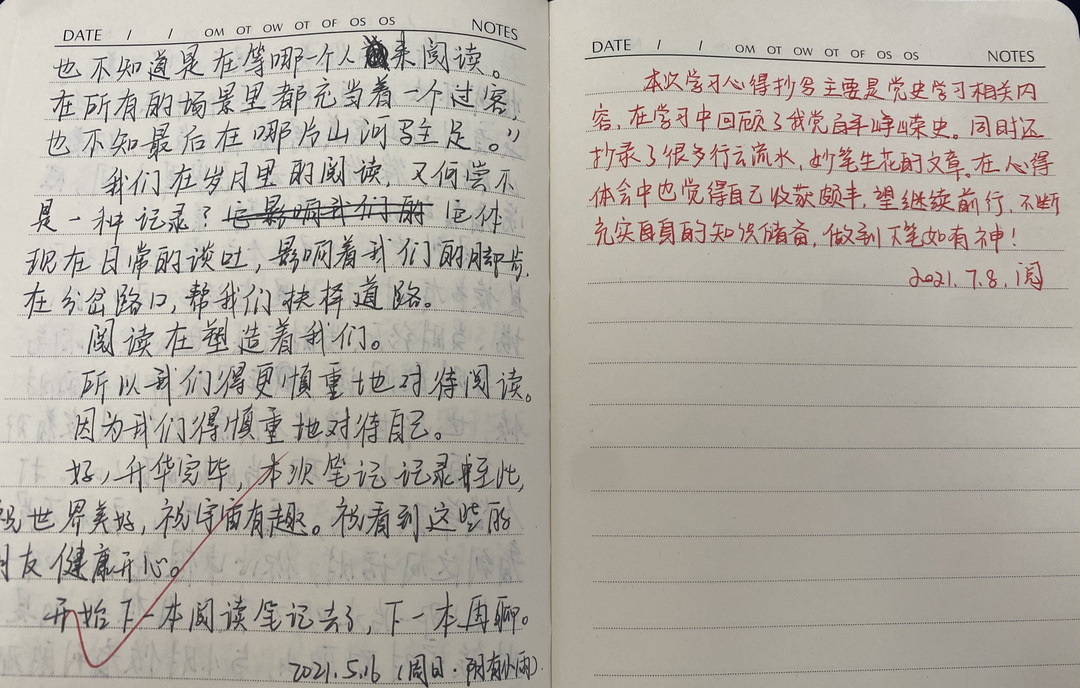 DATE / / OM OT OW OT OF OS OS NOTES
也不知道是在等哪一个人来阅读。
在所有的场景里都充当着一个过客,
也不知最后在哪片山河驻足。”
我们在岁月里的阅读,又何尝不
是一种记录?它影响我们的 它体
现在日常的谈吐,影响着我们的脚步,
在分岔路口,帮我们抉择道路。
阅读在塑造着我们。
所以我们得更慎重地对待阅读。
因为我们得慎重地对待自己。
好,升华完毕,本次笔记记录至此,
祝世界美好,祝宇宙有趣。祝看到这些的
朋友健康开心。
开始下一本阅读笔记去了,下一本再聊。
2021.5.16 (周日·阴有小雨)
DATE / / OM OT OW OT OF OS OS NOTES
本次学习心得抄写主要是党史学习相关内
容,在学习中回顾了我党百年峥嵘史。同时还
抄录了很多行云流水,妙笔生花的文章。在心得
体会中也觉得自己收获颇丰,望继续前行,不断
充实自身的知识储备,做到下笔如有神!
2021.7.8.阅